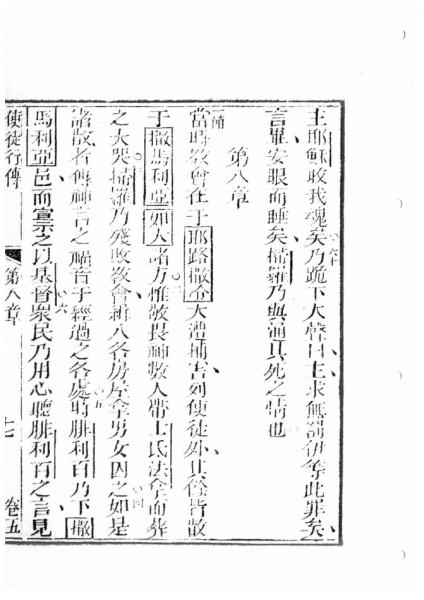 主耶穌收我魂矣乃跪下大聲曰主求無罰伊等此罪矣
言畢安眠而睡矣掃羅乃與湎其死之情也
第八章
當時教會在于耶路撒冷大遭捕害列使徒外其餘皆散
于撒馬利亞如大諸方惟敬畏神數人帶士氏法全而葬
之大哭掃羅乃殘敗教會緝入各房屋全男女囚之如是
諸散者傳神言之福音于經過之各處時腓利百乃下撒
馬利亞邑而宣宗之以基督衆民乃用心聽腓利百之言見
使徒行傳
第八章
七
卷五